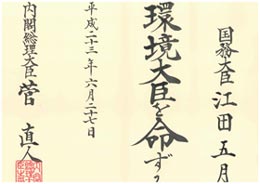 国務大臣 江田五月
環境大臣を命ずる
平成二十三年六月二十七日
内閣総理大臣 菅 直人